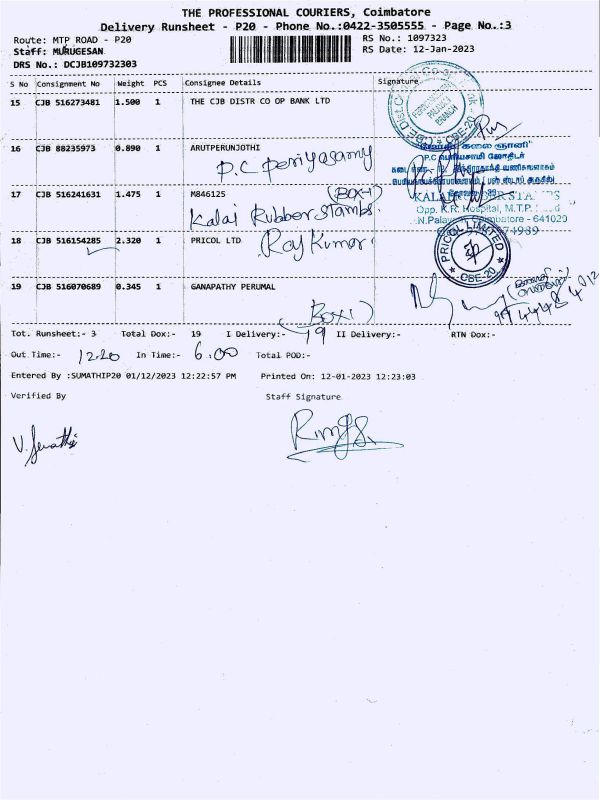 THE PROFESSIONAL COURIERS, Coimbatore
Delivery Runsheet - P20 - Phone No.:0422-3505555 - Page No.:3
Route: MTP ROAD - P20
RS No.: 1097323
Staff: MURUGESAN
RS Date: 12-Jan-2023
DRS No.: DCJB109732303
S No Consignment No Weight PCS Consignee Details Signature
15 CJB 516273481 1.500 1 THE CJB DISTR CO OP BANK LTD
PALAYAM
BRANCH
CBE-20
16 CJB 88235973 0.890 1 ARUTPERUNJOTHI
P.C periyasamy
கலை ஞானி"
P.C. பெரியசாமி ஜோதிடர்
17 CJB 516241631 1.475 1 M846125 (BOX-1)
Kalai Rubber stamps.
Opp. K.R. Hospital, M.T.P.
Coimbatore - 641020
18 CJB 516154285 2.320 1 PRICOL LTD Raj Kumar
PRICOL LIMITED
CBE-20
19 CJB 516070689 0.345 1 GANAPATHY PERUMAL
(BOX1)
Tot. Runsheet:- 3 Total Dox:- 19 I Delivery:- 19 II Delivery:- RTN Dox:-
Out Time:- 12.20 In Time:- 6.00 Total POD:-
Entered By :SUMATHIP20 01/12/2023 12:22:57 PM Printed On: 12-01-2023 12:23:03
Verified By Staff Signature